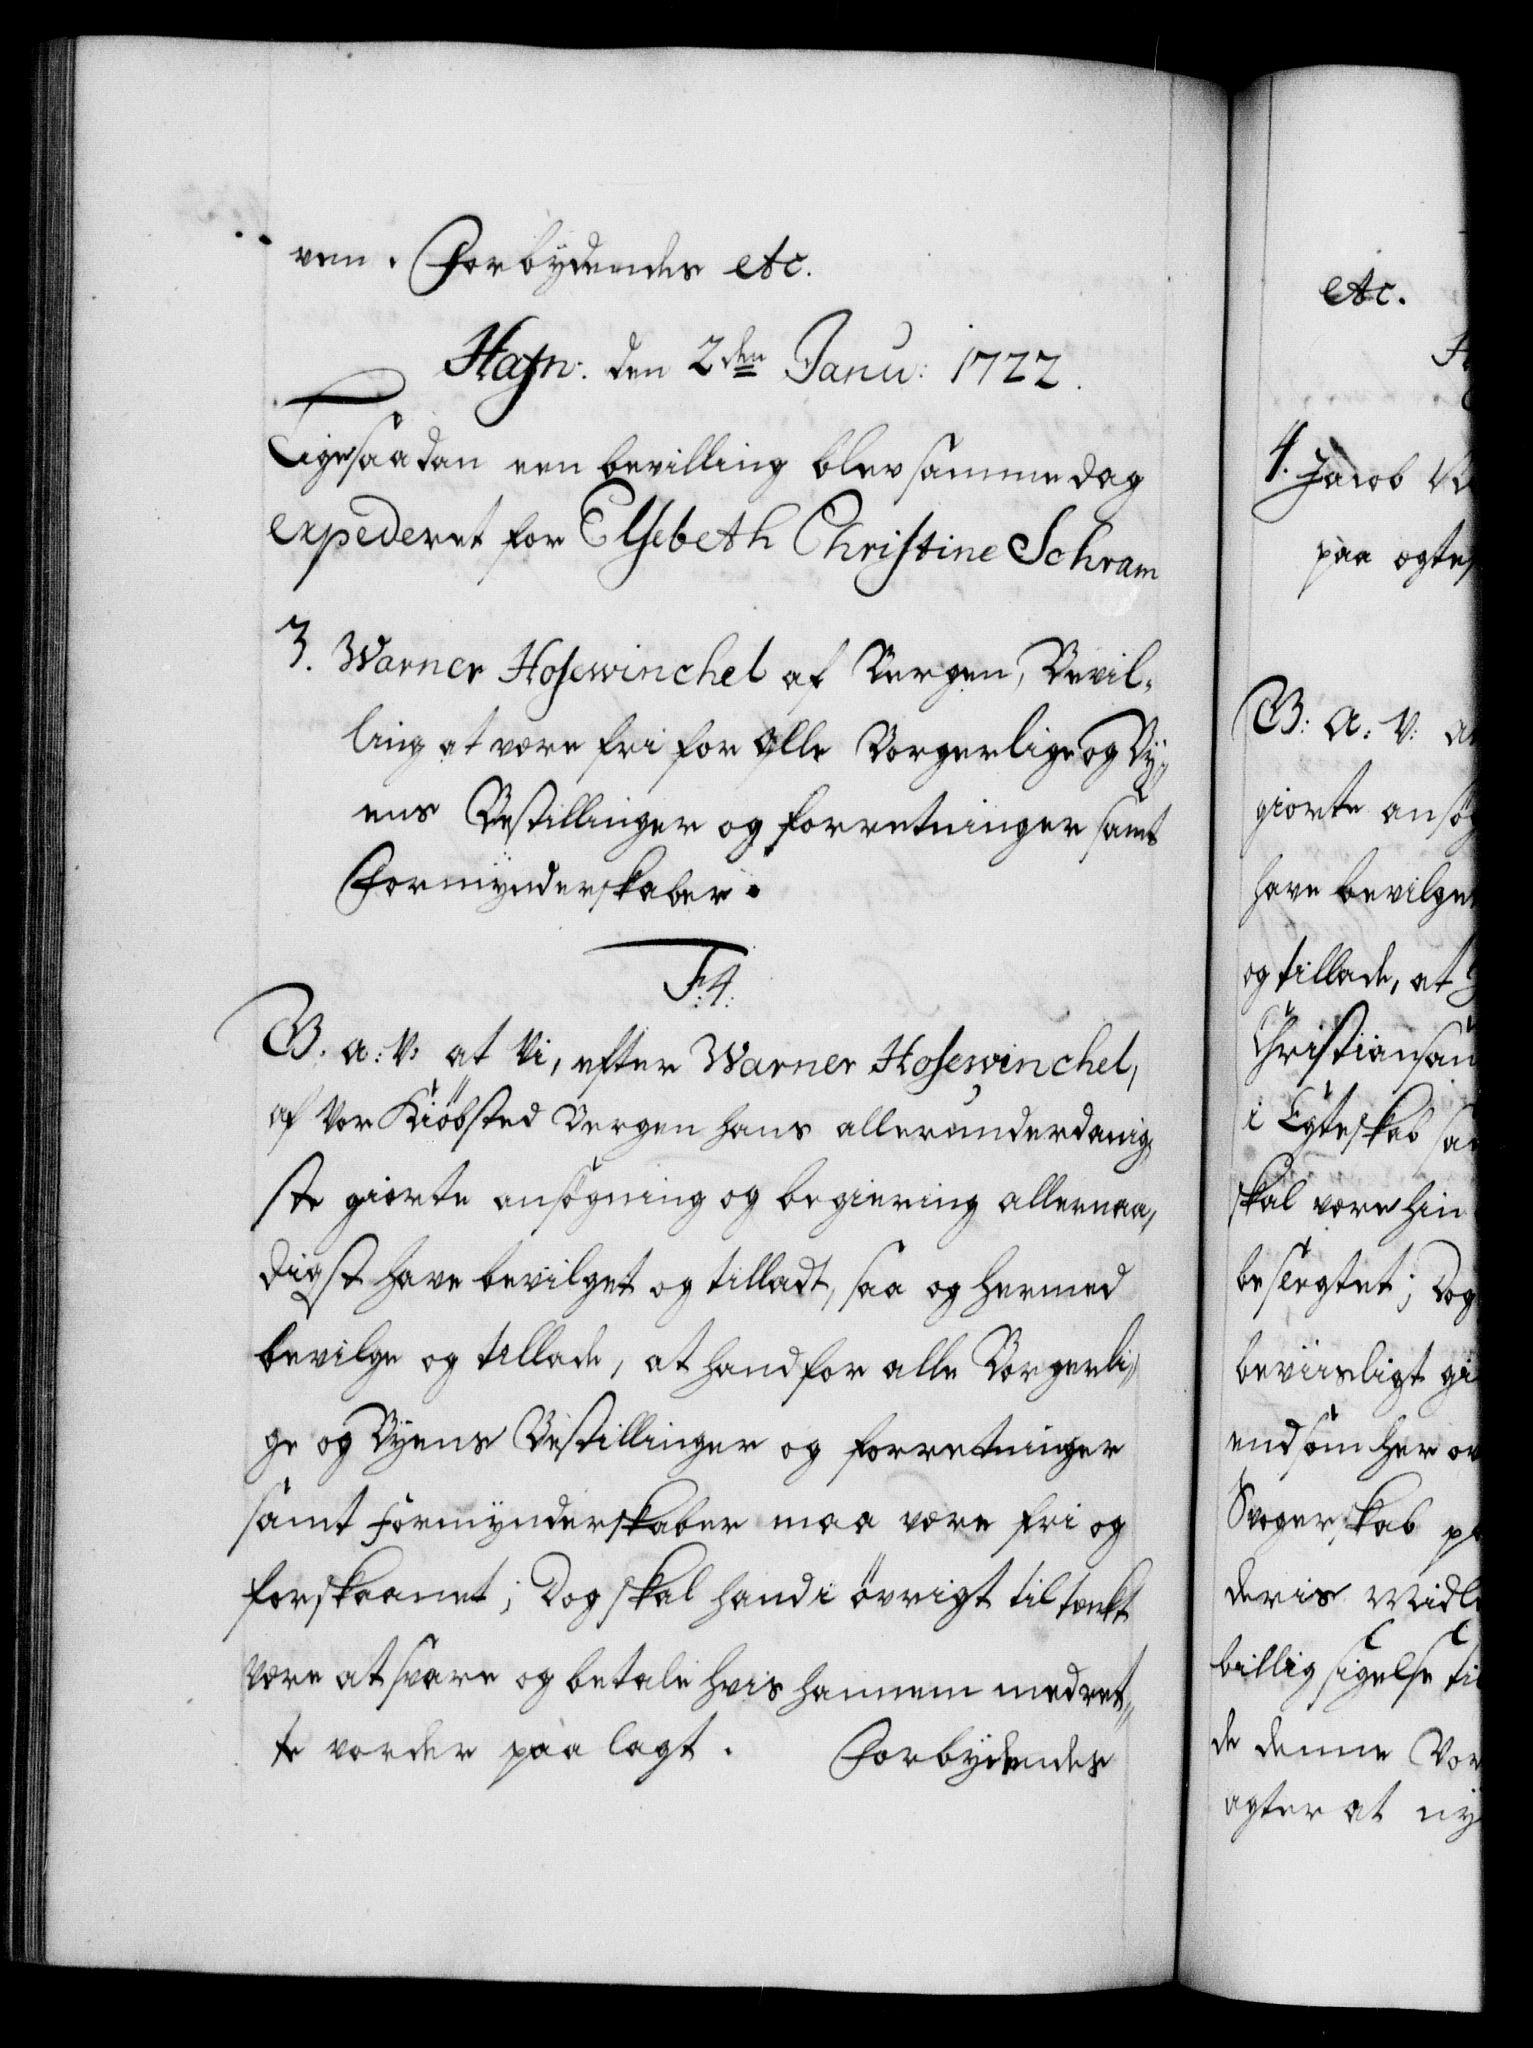 ven. Forbydendes etc.
Hafn: den 2den Janu: 1722.
Ligesaadan een bevilling blev samme dag
expederet for Elsebeth Christine Schram
3. Warner Hosewinchel af Bergen, Bevil-
ling at være fri for alle Borgerlige og By-
ens Bestillinger og forretninger samt
Formynderskaber.
F: 4.
G: a: V: at Vi, efter Warner Hosewinchel,
af Vor Kiöbsted Bergen hans allerunderdanig-
ste giorte ansögning og begiering allernaa-
digst have bevilget og tilladt, saa og hermed
bevilge og tillade, at hand for alle Borgerli-
ge og Byens Bestillinger og forretninger
samt Formynderskaber maa være fri og
forskaanet; Dog skal hand i övrigt tiltænkt
være at svare og betale hvis hannem med ret-
te vorder paa lagt. Forbydendes
etc.
4. Jacob
paa ægtes
G: a: V: at
giorte ansög
have bevilget
og tillade, at
Christiansan
i Egteskab sam
skal være hin
beslegtet; Dog
beviisligt gi
end som her ov
Svogerskab p
deris Midle
billig sigelse til
de denne Vor
agter at ny